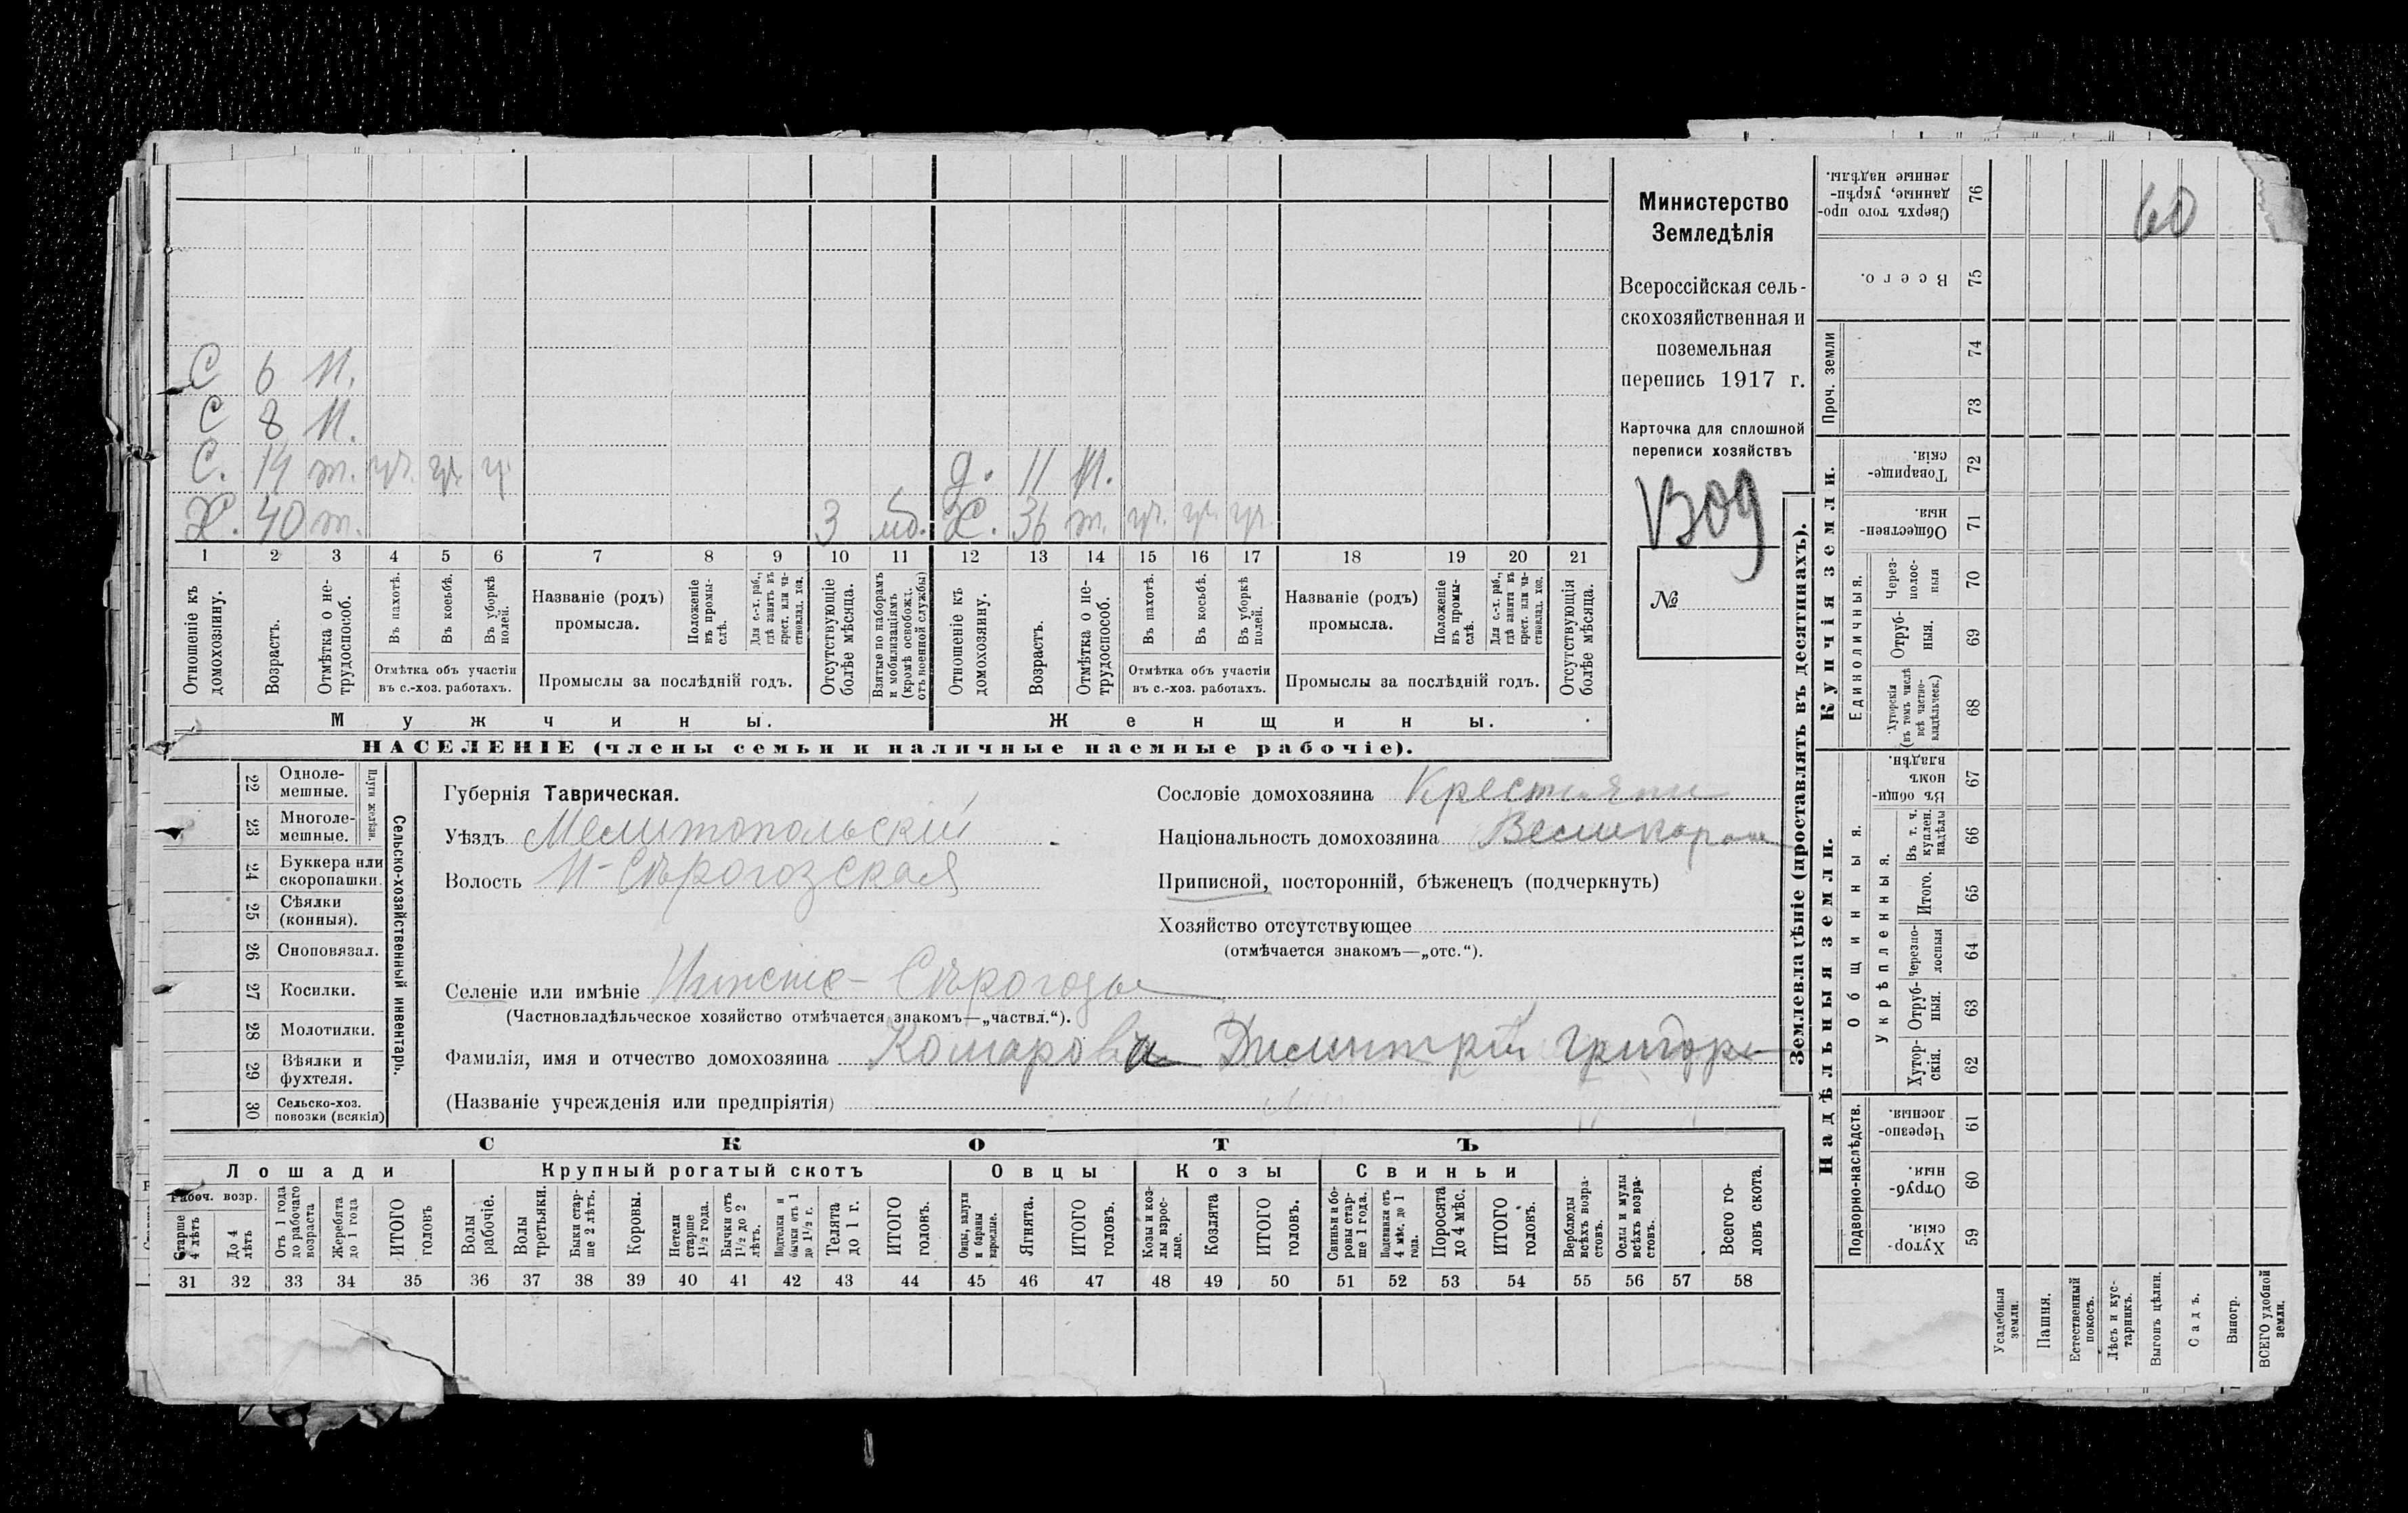 С 6 Н.
С 8 Н.
С. 14 т. уч. уч. уч. д. 11 Н.
Х. 40 т. 3 мб. Х. 36 т. уч. уч. уч.
1 2 3 4 5 6 7 8 9 10 11 12 13 14 15 16 17 18 19 20 21
Отношеніе къ домохозяину.
Возрастъ.
Отмѣтка о не-
трудоспособ.
Въ пахотѣ.
Въ косьбѣ.
Въ уборкѣ полей.
Отмѣтка объ участіи
въ с.-хоз. работахъ.
Названіе (родъ)
промысла.
Положеніе
въ промы-
слѣ.
Для с.-х. раб.,
гдѣ занятъ въ
крест. или ча-
стновлад. хоз.
Промыслы за послѣдній годъ.
Отсутствующіе
болѣе мѣсяца.
Взятые по наборамъ
и мобилизаціямъ
(кромѣ освобожд.
отъ военной службы)
Отношеніе къ
домохозяину.
Возрастъ.
Отмѣтка о не-
трудоспособ.
Въ пахотѣ.
Въ косьбѣ.
Въ уборкѣ
полей.
Отмѣтка объ участіи
въ с.-хоз. работахъ.
Названіе (родъ)
промысла.
Положеніе
въ промы-
слѣ.
Для с.-х. раб.,
гдѣ занята въ
крест. или ча-
стновлад. хоз.
Промыслы за послѣдній годъ.
Отсутствующія
болѣе мѣсяца.
Мужчины.
Женщины.
НАСЕЛЕНІЕ (члены семьи и наличные наемные рабочіе).
Министерство
Земледѣлія
Всероссійская сель-
скохозяйственная и
поземельная
перепись 1917 г.
Карточка для сплошной
переписи хозяйствъ
№
22 Одноле-
мешные.
23 Многоле-
мешные.
Плуги желѣзн.
24 Буккера или
скоропашки
25 Сѣялки
(конныя).
26 Сноповязал.
27 Косилки.
28 Молотилки.
29 Вѣялки и
фухтеля.
30 Сельско-хоз.
повозки (всякія)
Сельско-хозяйственный инвентарь.
Губернія Таврическая.
Уѣздъ Мелитопольскій
Волость Н-Сѣрогозская
Селеніе или имѣніе Нижніе-Сѣрогозы
(Частновладѣльческое хозяйство отмѣчается знакомъ—„частвл.“).
Фамилія, имя и отчество домохозяина Комарова Дмитрій Григорь
(Названіе учрежденія или предпріятія)
Сословіе домохозяина Крестьянин
Національность домохозяина Великорос
Приписной, посторонній, бѣженецъ (подчеркнуть)
Хозяйство отсутствующее
(отмѣчается знакомъ—„отс.“).
СКОТЪ
Лошади
Крупный рогатый скотъ
Овцы
Козы
Свиньи
Рабоч. возр.
Старше
4 лѣтъ
До 4
лѣтъ
Отъ 1 года
до рабочаго
возраста
Жеребята
до 1 года
ИТОГО
головъ
Волы
рабочіе.
Волы
третьяки.
Быки стар-
ше 2 лѣтъ.
Коровы.
Нетели
старше
1½ года.
Бычки отъ
1½ до 2
лѣтъ.
Подтелки и
бычки отъ 1
до 1½ г.
Телята
до 1 г.
ИТОГО
головъ.
Овцы, валухи
и бараны
взрослые.
Ягнята.
ИТОГО
головъ.
Козы и коз-
лы взрос-
лые.
Козлята
ИТОГО
головъ.
Свиньи и бо-
ровы стар-
ше 1 года.
Подсвинки отъ
4 мѣс. до 1
года.
Поросята
до 4 мѣс.
ИТОГО
головъ.
Верблюды
всѣхъ возра-
стовъ.
Ослы и мулы
всѣхъ возра-
стовъ.
Всего го-
ловъ скота.
31 32 33 34 35 36 37 38 39 40 41 42 43 44 45 46 47 48 49 50 51 52 53 54 55 56 57 58
Землевладѣніе (проставлять въ десятинахъ).
Купчія земли.
Надѣльныя земли.
60
Сверхъ того про-
данные, укрѣп-
ленные надѣлы. 76
Всего. 75
Проч. земли
74
73
Товарище-
скія. 72
Обществен-
ныя. 71
Единоличныя.
Через-
полос-
ныя 70
Отруб-
ныя. 69
Хуторскія
(въ томъ числѣ
всѣ частно-
владѣльческ.) 68
Общинныя.
Въ общин-
номъ
владѣн. 67
Укрѣпленныя.
Въ т. ч.
куплен.
надѣлы 66
Итого. 65
Черезпо-
лосныя 64
Отруб-
ныя. 63
Хутор-
скія. 62
Подворно-наслѣдств.
Черезпо-
лосныя. 61
Отруб-
ныя. 60
Хутор-
скія. 59
Усадебныя
земли.
Пашня.
Естественный
покосъ.
Лѣсъ и кус-
тарникъ.
Выгонъ цѣлин.
Садъ.
Виногр.
ВСЕГО удобной
земли.